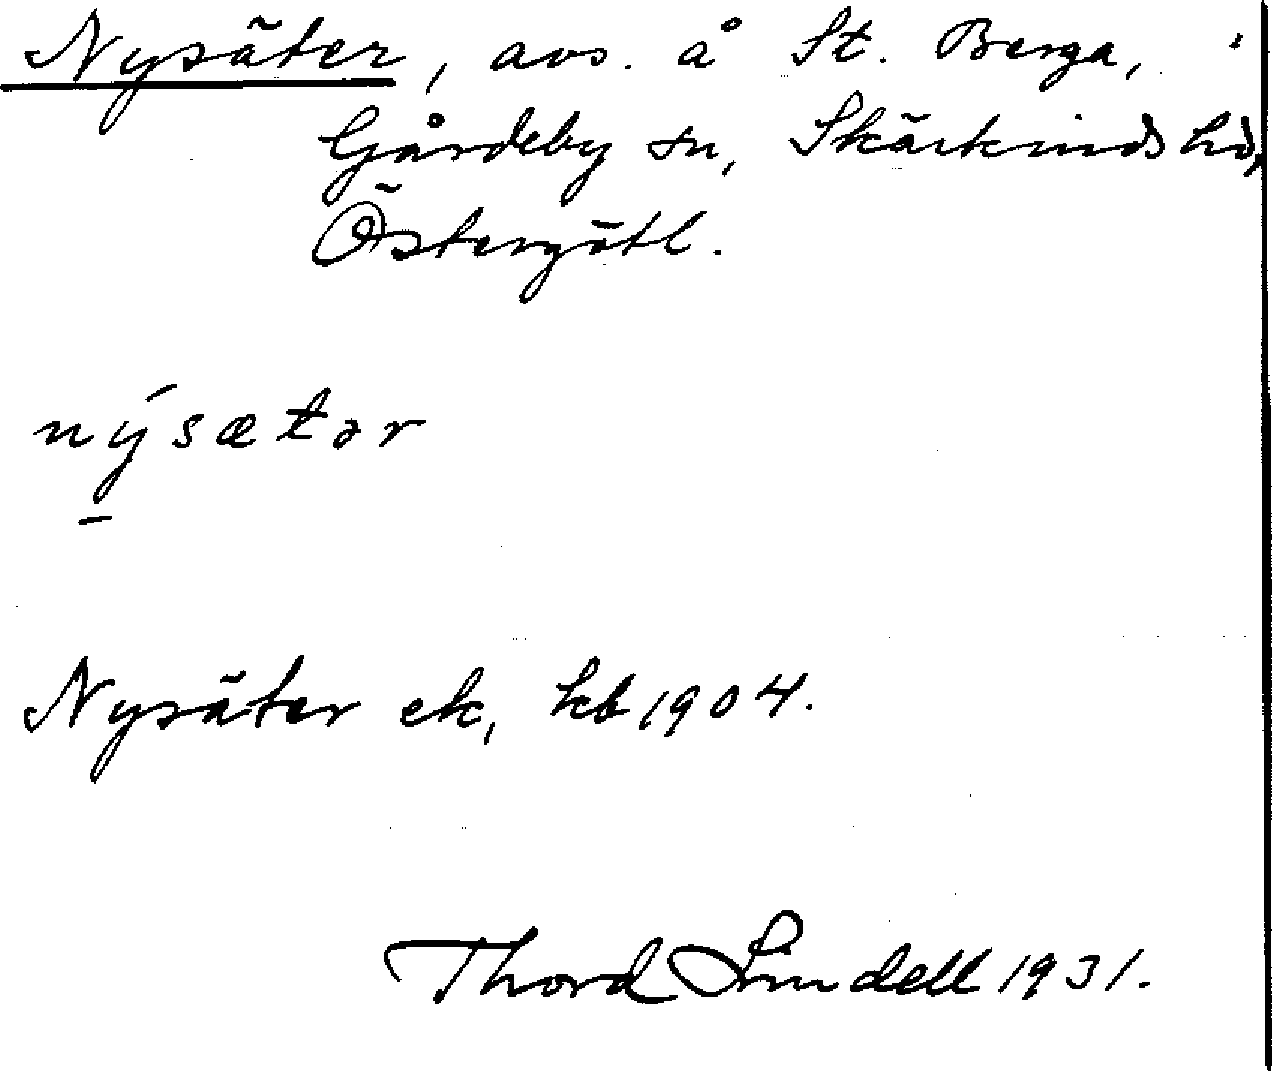 Nysäter, avs. å St. Berga, i
Gårdeby sn, Skärkinds hd,
Östergötl.
nýsætər
Nysäter ek, kb 1904.
Thord Lindell 1931.